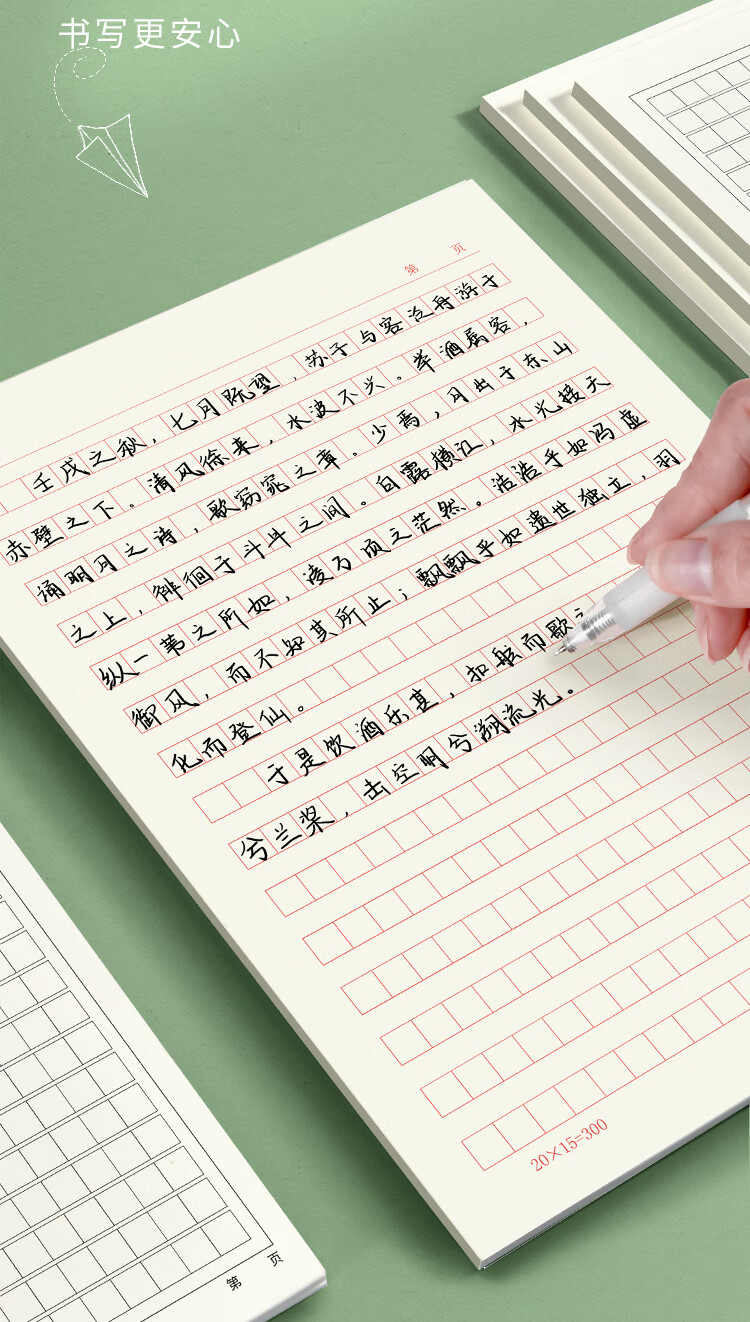 书写更安心
第 页
壬戌之秋，七月既望，苏子与客泛舟游于
赤壁之下。清风徐来，水波不兴。举酒属客，
诵明月之诗，歌窈窕之章。少焉，月出于东山
之上，徘徊于斗牛之间。白露横江，水光接天
纵一苇之所如，凌万顷之茫然。浩浩乎如冯虚
御风，而不知其所止；飘飘乎如遗世独立，羽
化而登仙。
于是饮酒乐甚，扣舷而歌之
兮兰桨，击空明兮溯流光。
20×15=300
第 页